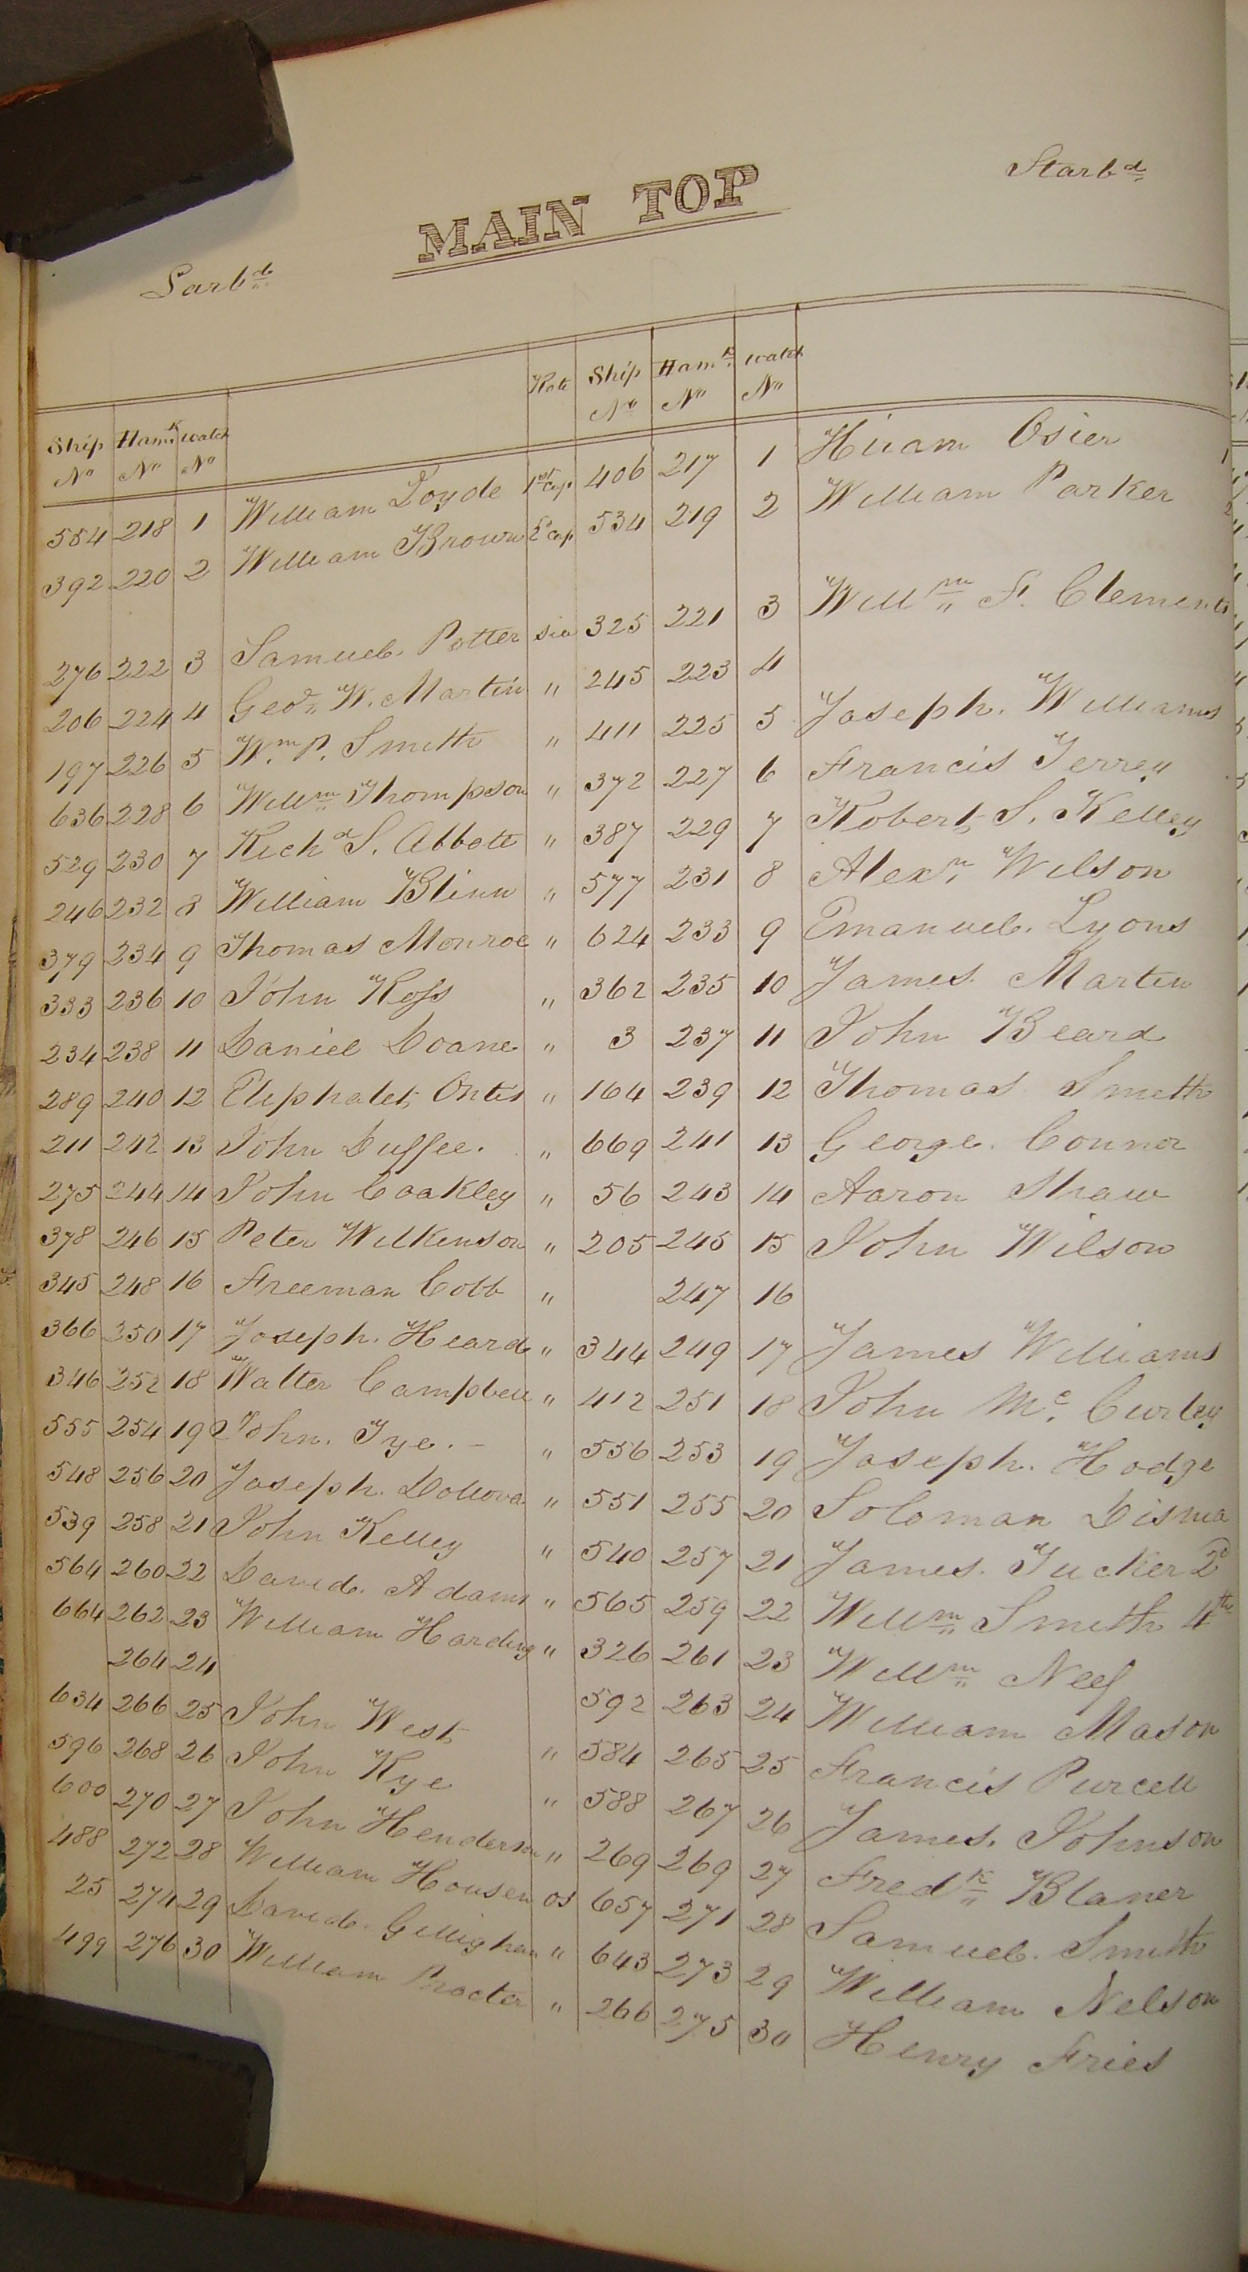 Starbd
MAIN TOP
Larbd
Ship No Hamk No watch No Rate Ship No Hamk No watch No
554 218 1 William Loyde 1st Cap 406 217 1 Hiram Osier
392 220 2 William Brown 2 Cap 534 219 2 William Parker
276 222 3 Samuel Potter sea 325 221 3 Willm F. Clements
206 224 4 Geo. W. Martin " 245 223 4
197 226 5 Wm P. Smith " 411 225 5 Joseph Williams
636 228 6 Willm Thompson " 372 227 6 Francis Terrey
529 230 7 Richd S. Abbott " 387 229 7 Robert S. Kelley
246 232 8 William Blinn " 577 231 8 Alexr Wilson
379 234 9 Thomas Monroe " 624 233 9 Emanuel Lyons
333 236 10 John Ross " 362 235 10 James Martin
234 238 11 Daniel Doane " 3 237 11 John Beard
289 240 12 Eliphalet Ontis " 164 239 12 Thomas Smith
211 242 13 John Duffee. " 669 241 13 George Connor
275 244 14 John Coakley " 56 243 14 Aaron Shaw
378 246 15 Peter Wilkenson " 205 245 15 John Wilson
345 248 16 Freeman Cobb " 247 16
366 250 17 Joseph Heard " 344 249 17 James Williams
346 252 18 Walter Campbell " 412 251 18 John Mc Curley
555 254 19 John Tye. " 556 253 19 Joseph Hodge
548 256 20 Joseph " 551 255 20 Soloman
539 258 21 John Kelley " 540 257 21 James Tucker 2d
564 260 22 David Adams " 565 259 22 Willm Smith 4th
664 262 23 William Harding " 326 261 23 Willm Neef
264 24 592 263 24 William Mason
634 266 25 John West " 584 265 25 Francis Purcell
596 268 26 John Kye " 588 267 26 James Johnson
600 270 27 John Henderson " 269 269 27 Fredk Blaner
488 272 28 William Housen os 657 271 28 Samuel Smith
25 274 29 David Gillighan " 643 273 29 William Nelson
499 276 30 William Procter " 266 275 30 Henry Fries